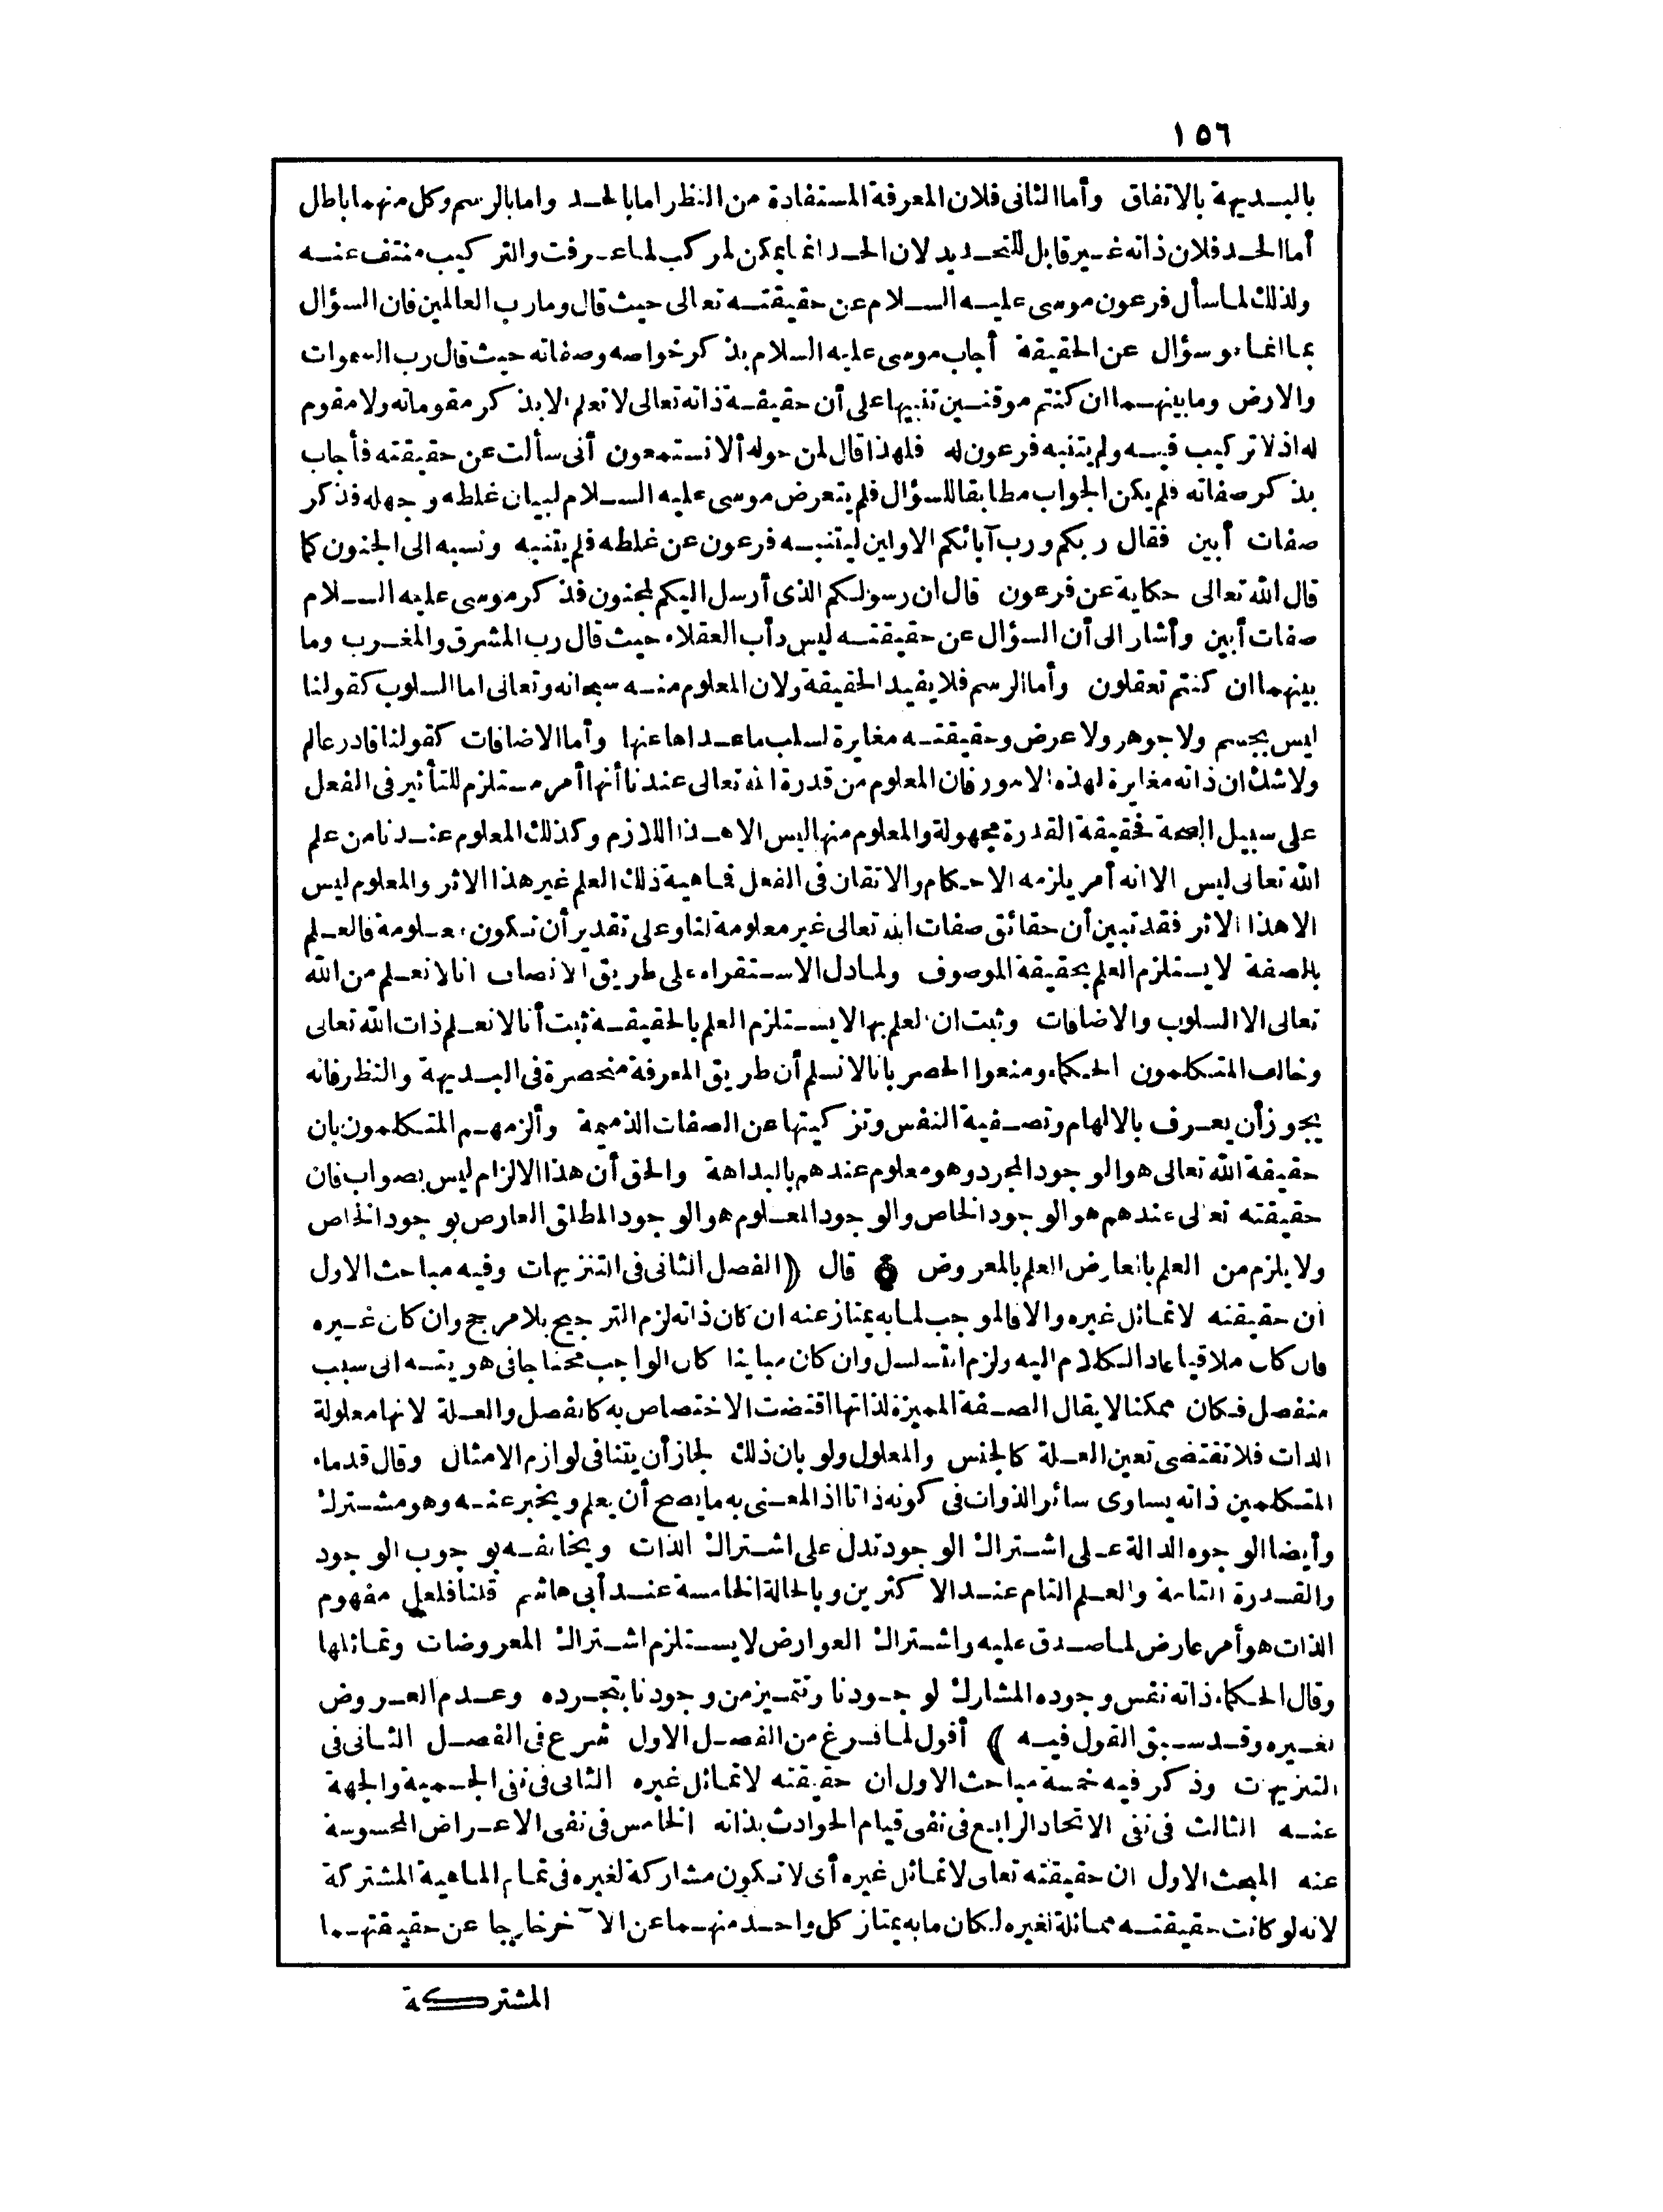 ١٥٦
بالبديهة بالاتفاق وأما الثانى فلان المعرفة المستفادة من النظر اما بالحد واما بالرسم وكل منهما باطل
أما الحد فلان ذاته غير قابل للتحديد لان الحد انما يمكن لمركب لما عرفت والتركيب منتف عنه
ولذلك لما سأل فرعون موسى عليه السلام عن حقيقته تعالى حيث قال وما رب العالمين فان السؤال
بما انما هو سؤال عن الحقيقة أجاب موسى عليه السلام بذكر خواصه وصفاته حيث قال رب السموات
والارض وما بينهما ان كنتم موقنين تنبيها على أن حقيقة ذاته تعالى لا تعلم الا بذكر مقوماته ولا مقوم
له اذ لا تركيب فيه ولم يتنبه فرعون له فلهذا قال لمن حوله ألا تستمعون أنى سألت عن حقيقته فأجاب
بذكر صفاته فلم يكن الجواب مطابقا للسؤال فلم يتعرض موسى عليه السلام لبيان غلطه وجهله فذكر
صفات أبين فقال ربكم ورب آبائكم الاولين ليتنبه فرعون عن غلطه فلم يتنبه ونسبه الى الجنون كما
قال الله تعالى حكاية عن فرعون قال ان رسولكم الذى أرسل اليكم لمجنون فذكر موسى عليه السلام
صفات أبين وأشار الى أن السؤال عن حقيقته ليس دأب العقلاء حيث قال رب المشرق والمغرب وما
بينهما ان كنتم تعقلون وأما الرسم فلا يفيد الحقيقة ولان المعلوم منه سبحانه وتعالى اما السلوب كقولنا
ليس بجسم ولا جوهر ولا عرض وحقيقته مغايرة لسلب ما عداها عنها وأما الاضافات كقولنا قادر عالم
ولا شك ان ذاته مغايرة لهذه الامور فان المعلوم من قدرة الله تعالى عندنا أنها أمر مستلزم للتأثير فى الفعل
على سبيل الصحة فحقيقة القدرة مجهولة والمعلوم منها ليس الا هذا اللازم وكذلك المعلوم عندنا من علم
الله تعالى ليس الا انه أمر يلزمه الاحكام والاتقان فى الفعل فماهية ذلك العلم غير هذا الاثر والمعلوم ليس
الا هذا الاثر فقد تبين أن حقائق صفات الله تعالى غير معلومة لنا وعلى تقدير أن تكون معلومة فالعلم
بالصفة لا يستلزم العلم بحقيقة الموصوف ولما دل الاستقراء على طريق الانصاف انا لا نعلم من الله
تعالى الا السلوب والاضافات وثبت ان العلم بها لا يستلزم العلم بالحقيقة ثبت أنا لا نعلم ذات الله تعالى
وخالف المتكلمون الحكماء ومنعوا الحصر بانا لا نسلم أن طريق المعرفة منحصرة فى البديهة والنظر فانه
يجوز أن يعرف بالالهام وتصفية النفس وتزكيتها عن الصفات الذميمة وألزمهم المتكلمون بان
حقيقة الله تعالى هو الوجود المجرد وهو معلوم عندهم بالبداهة والحق أن هذا الالزام ليس بصواب فان
حقيقته تعالى عندهم هو الوجود الخاص والوجود المعلوم هو الوجود المطلق العارض بوجود الخاص
ولا يلزم من العلم بالعارض العلم بالمعروض قال (الفصل الثانى فى التنزيهات وفيه مباحث الاول
أن حقيقته لا تماثل غيره والا فالموجب لما به يمتاز عنه ان كان ذاته لزم الترجيح بلا مرجح وان كان غيره
فان كان ملاقيا عاد الكلام اليه ولزم التسلسل وان كان مباينا كان الواجب محتاجا فى هويته الى سبب
منفصل فكان ممكنا لا يقال الصفة المميزة لذاتها اقتضت الاختصاص به كالفصل والعلة لانها معلولة
الذات فلا تقتضى تعين العلة كالجنس والمعلول ولو بان ذلك لجاز أن يتنافى لوازم الامثال وقال قدماء
المتكلمين ذاته يساوى سائر الذوات فى كونه ذاتا اذ المعنى به ما يصح أن يعلم ويخبر عنه وهو مشترك
وأيضا الوجوه الدالة على اشتراك الوجود تدل على اشتراك الذات ويخالفه بوجوب الوجود
والقدرة التامة والعلم التام عند الاكثرين وبالحالة الخامسة عند أبى هاشم قلنا فلعل مفهوم
الذات هو أمر عارض لما صدق عليه واشتراك العوارض لا يستلزم اشتراك المعروضات وتماثلها
وقال الحكماء ذاته نفس وجوده المشارك لوجودنا وتتميز من وجودنا بتجرده وعدم العروض
لغيره وقد سبق القول فيه) أقول لما فرغ من الفصل الاول شرع فى الفصل الثانى فى
التنزيهات وذكر فيه خمسة مباحث الاول ان حقيقته لا تماثل غيره الثانى فى نفى الجسمية والجهة
عنه الثالث فى نفى الاتحاد الرابع فى نفى قيام الحوادث بذاته الخامس فى نفى الاعراض المحسوسة
عنه المبحث الاول ان حقيقته تعالى لا تماثل غيره أى لا تكون مشاركة لغيره فى تمام الماهية المشتركة
لانه لو كانت حقيقته مماثلة لغيره لكان ما به يمتاز كل واحد منهما عن الآخر خارجا عن حقيقتهما
المشتركة